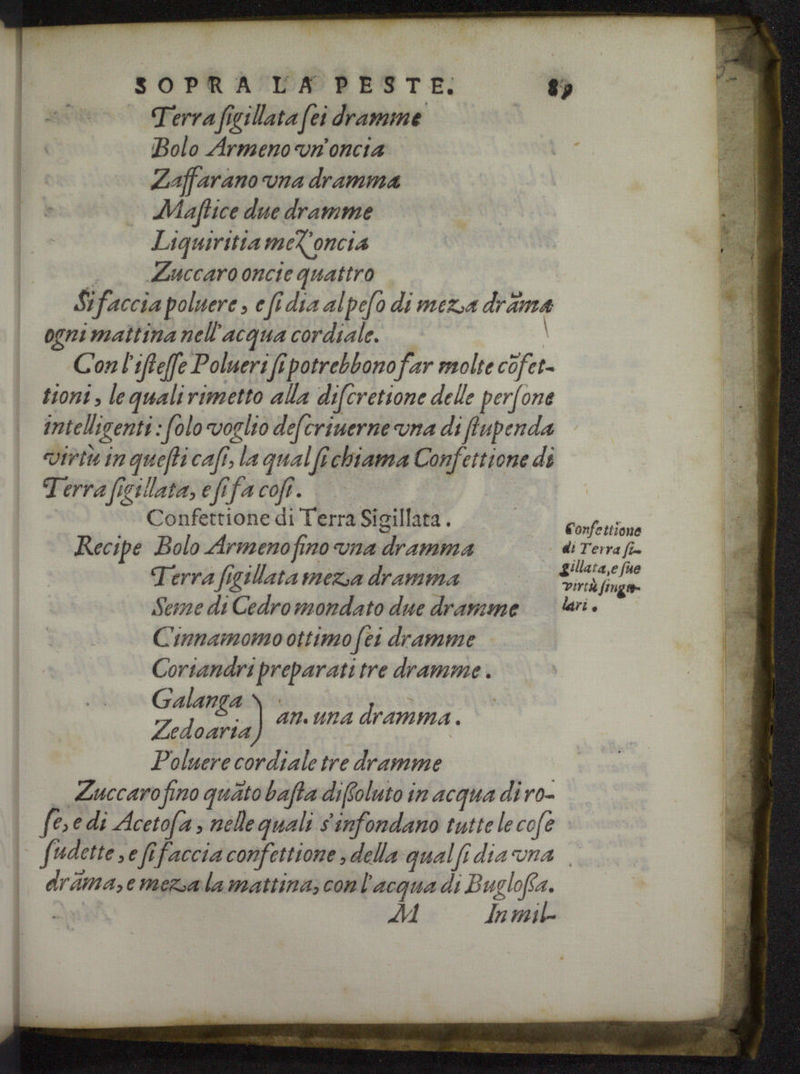 SOPRA LA PESTE. 89
Terra ſigillata ſei dramme
Bolo Armeno vn'oncia
Zaffarano vna dramma
Maſtice due dramme
Liquiritia mez'oncia
Zuccaro oncie quattro
Si faccia poluere, e ſi dia al peſo di meza drāma
ogni mattina nell'acqua cordiale.
Con l'iſteſſe Polueri ſi potrebbono far molte cōfet-
tioni, le quali rimetto alla diſcretione delle perſone
intelligenti: ſolo voglio deſcriuerne vna di ſtupenda
virtù in queſti caſi, la qual ſi chiama Confettione di
Terra ſigillata, e ſi fa coſi.
Confettione di Terra Sigillata.
Recipe Bolo Armeno fino vna dramma
Terra ſigillata meza dramma
Seme di Cedro mondato due dramme
Cinnamomo ottimo ſei dramme
Coriandri preparati tre dramme.
Galanga
Zedoaria) an. una dramma.
Poluere cordiale tre dramme
Zuccaro fino quāto baſta diſſoluto in acqua di ro-
ſe, e di Acetoſa, nelle quali s'infondano tutte le coſe
ſudette, e ſi faccia confettione, della qual ſi dia vna
drāma, e meza la mattina, con l'acqua di Bugloſſa.
M In mil-
Confettione
di Terra ſi-
gillata, e ſue
virtù ſingu-
lari.